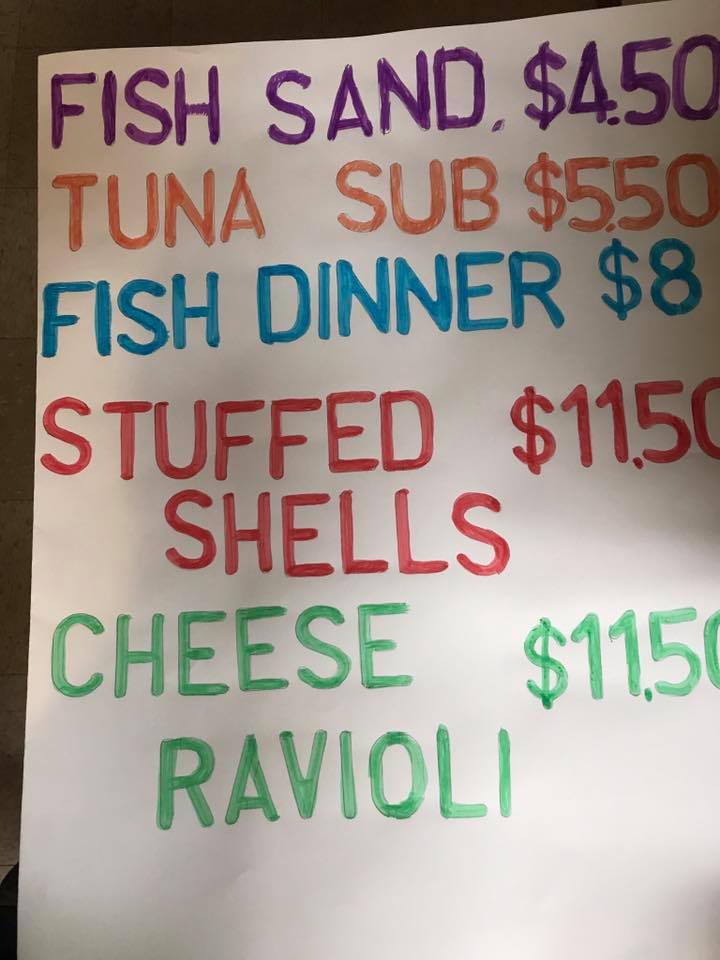 FISH SAND. $4.50
TUNA SUB $5.50
FISH DINNER $8
STUFFED $11.50
SHELLS
CHEESE $11.50
RAVIOLI